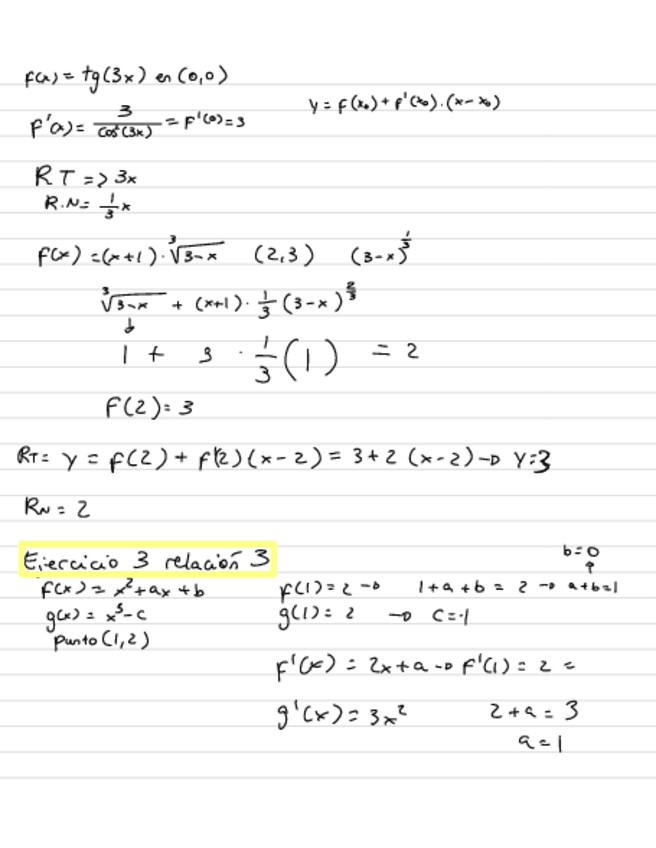 f(x) = tg(3x) en (0,0)
y = f(x₀) + f'(x₀)·(x-x₀)
F'(x) = 3/cos²(3x) = F'(0) = 3
R T => 3x
R.N = 1/3 x
f(x) = (x+1)·∛(3-x) (2,3) (3-x)^(1/3)
∛(3-x) + (x+1)· 1/3 (3-x)^(2/3)
1 + 3 · 1/3 (1) = 2
F(2) = 3
RT = y = f(2) + f'(2)(x-2) = 3+2 (x-2) → y=3
RN = 2
Ejercicio 3 relación 3
b=0
↑
f(x) = x²+ax+b f(1)=2 → 1+a+b = 2 → a+b=1
g(x) = x³-c g(1)=2 → c=-1
punto (1,2)
f'(x) = 2x+a → f'(1) = 2 =
g'(x) = 3x² 2+a = 3
a=1